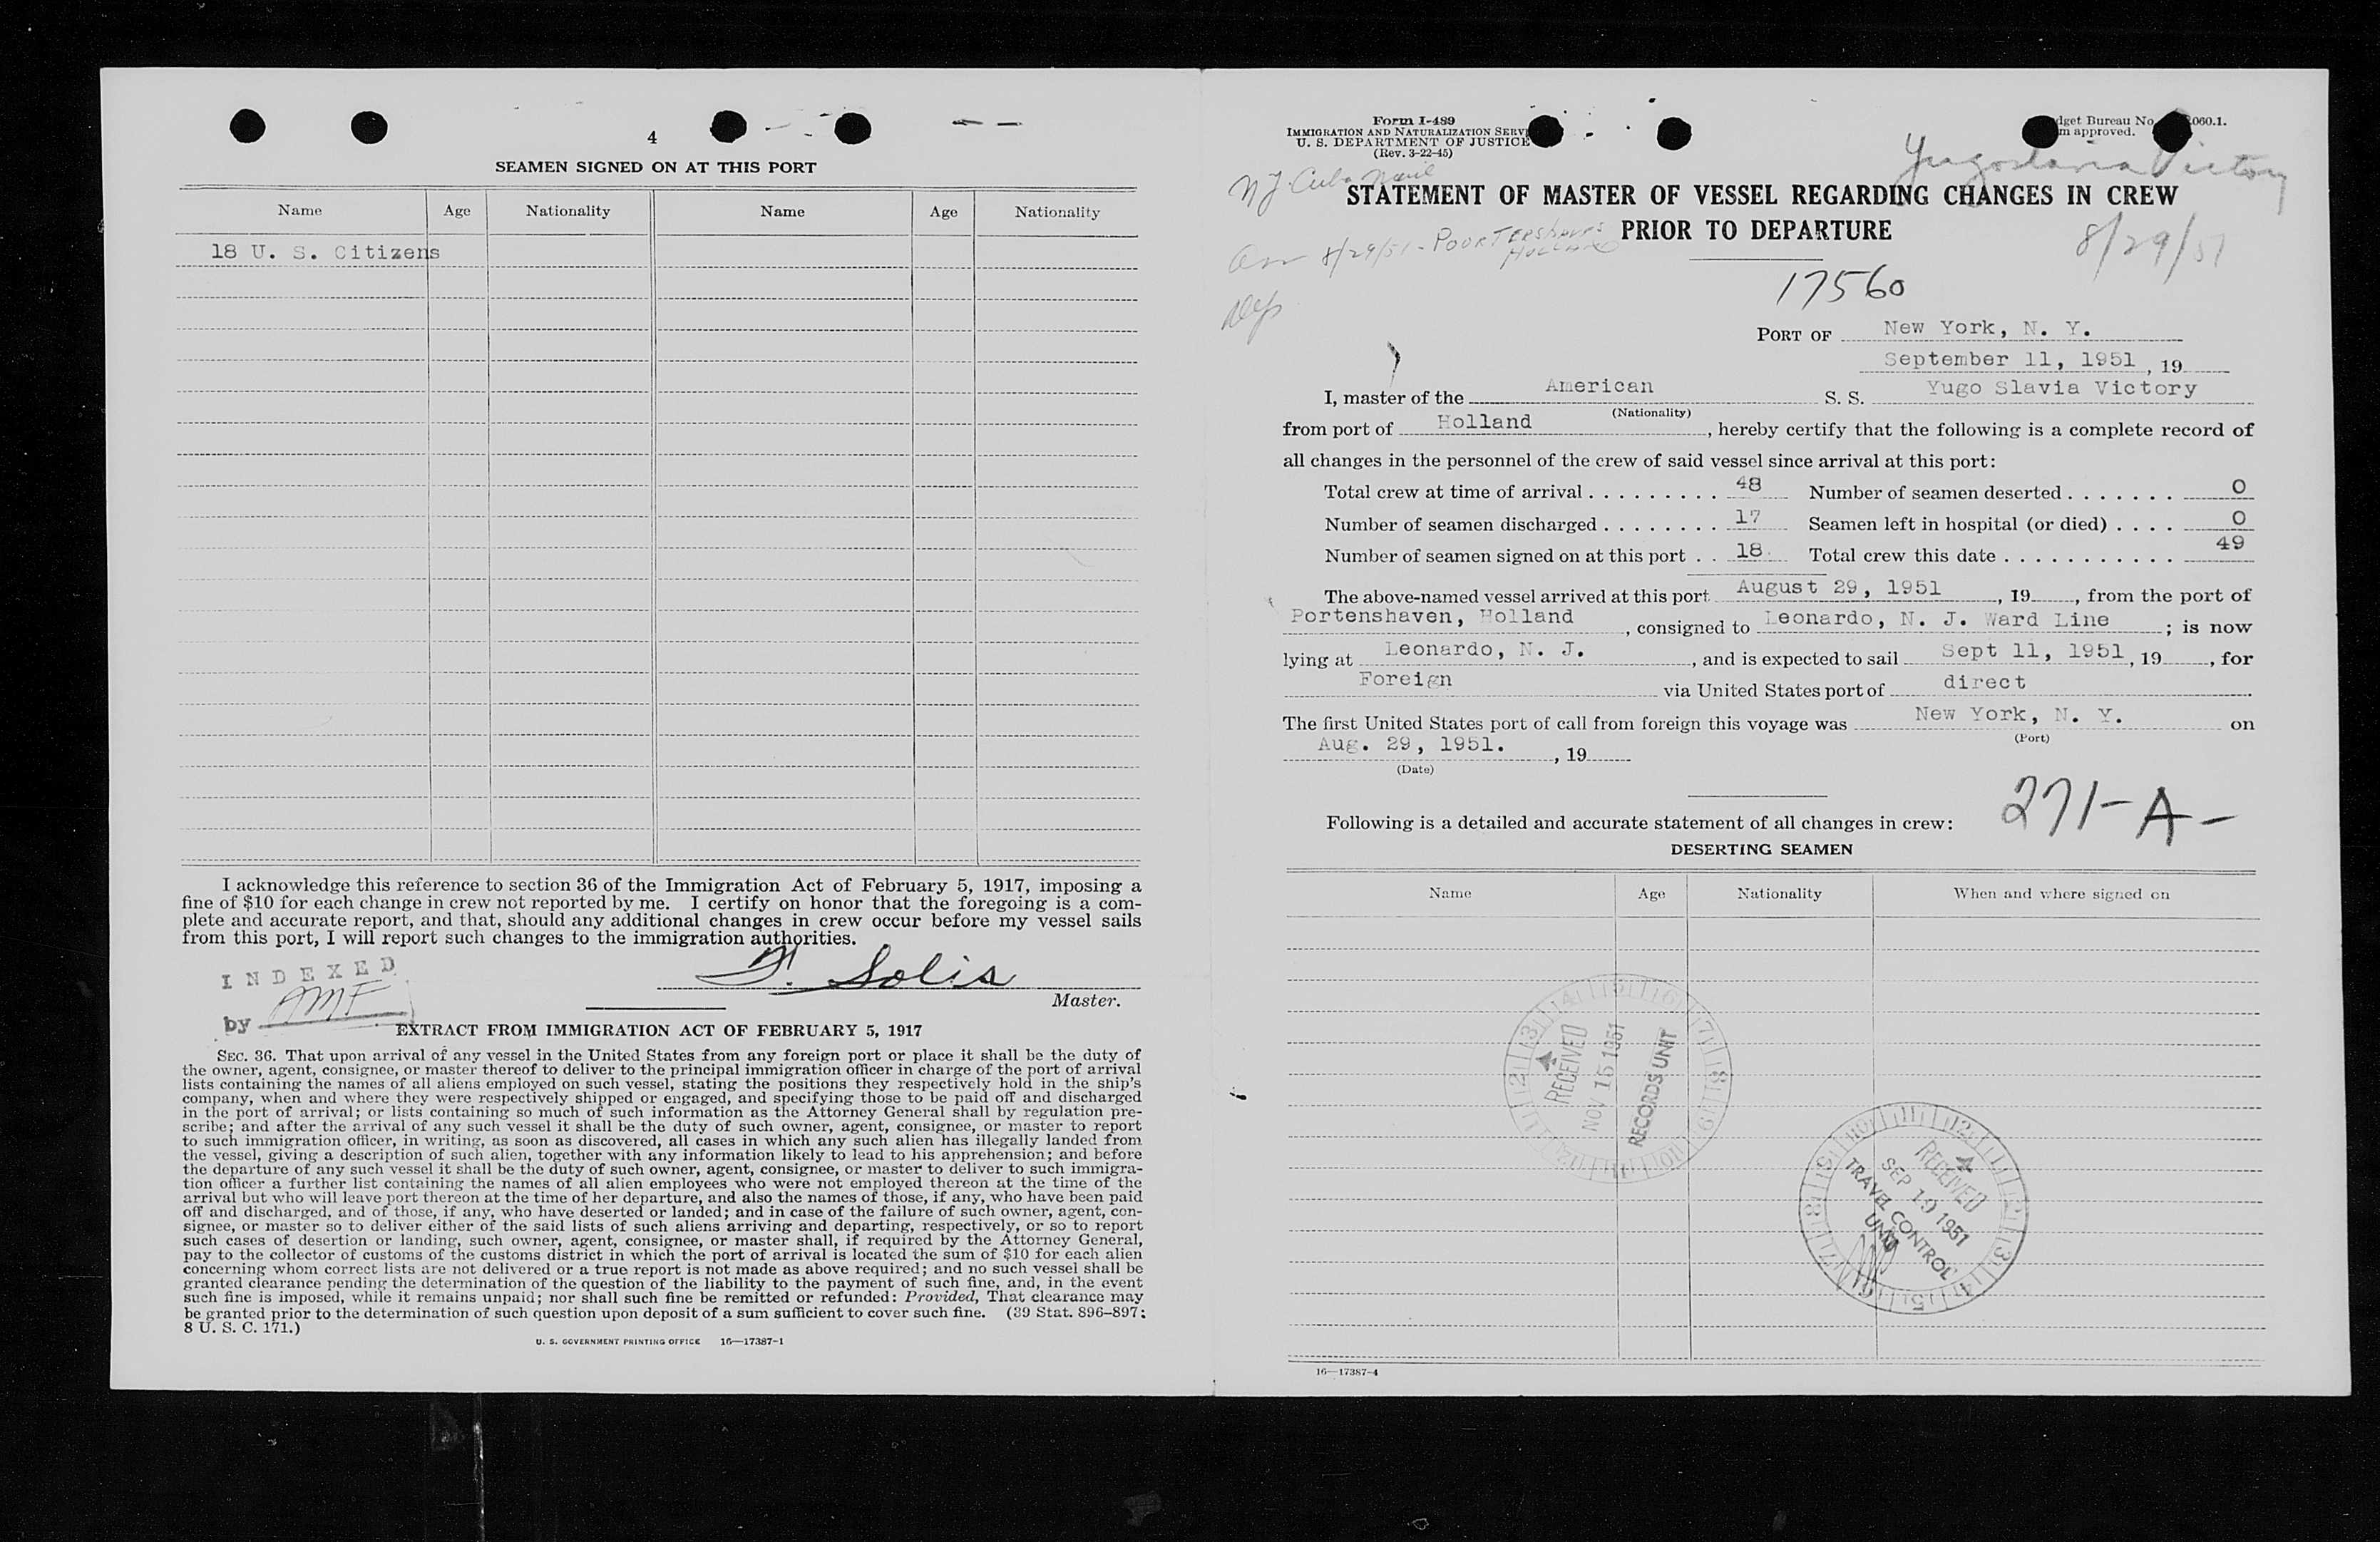 4
SEAMEN SIGNED ON AT THIS PORT
Name Age Nationality Name Age Nationality
18 U. S. Citizens
I acknowledge this reference to section 36 of the Immigration Act of February 5, 1917, imposing a
fine of $10 for each change in crew not reported by me. I certify on honor that the foregoing is a com-
plete and accurate report, and that, should any additional changes in crew occur before my vessel sails
from this port, I will report such changes to the immigration authorities.
INDEXED
by AMF
F. Solis
Master.
EXTRACT FROM IMMIGRATION ACT OF FEBRUARY 5, 1917
SEC. 36. That upon arrival of any vessel in the United States from any foreign port or place it shall be the duty of
the owner, agent, consignee, or master thereof to deliver to the principal immigration officer in charge of the port of arrival
lists containing the names of all aliens employed on such vessel, stating the positions they respectively hold in the ship's
company, when and where they were respectively shipped or engaged, and specifying those to be paid off and discharged
in the port of arrival; or lists containing so much of such information as the Attorney General shall by regulation pre-
scribe; and after the arrival of any such vessel it shall be the duty of such owner, agent, consignee, or master to report
to such immigration officer, in writing, as soon as discovered, all cases in which any such alien has illegally landed from
the vessel, giving a description of such alien, together with any information likely to lead to his apprehension; and before
the departure of any such vessel it shall be the duty of such owner, agent, consignee, or master to deliver to such immigra-
tion officer a further list containing the names of all alien employees who were not employed thereon at the time of the
arrival but who will leave port thereon at the time of her departure, and also the names of those, if any, who have been paid
off and discharged, and of those, if any, who have deserted or landed; and in case of the failure of such owner, agent, con-
signee, or master so to deliver either of the said lists of such aliens arriving and departing, respectively, or so to report
such cases of desertion or landing, such owner, agent, consignee, or master shall, if required by the Attorney General,
pay to the collector of customs of the customs district in which the port of arrival is located the sum of $10 for each alien
concerning whom correct lists are not delivered or a true report is not made as above required; and no such vessel shall be
granted clearance pending the determination of the question of the liability to the payment of such fine, and, in the event
such fine is imposed, while it remains unpaid; nor shall such fine be remitted or refunded: Provided, That clearance may
be granted prior to the determination of such question upon deposit of a sum sufficient to cover such fine. (39 Stat. 896–897;
8 U. S. C. 171.)
U. S. GOVERNMENT PRINTING OFFICE 16—17387-1
Form I-489
IMMIGRATION AND NATURALIZATION SERV
U. S. DEPARTMENT OF JUSTICE
(Rev. 3-22-45)
dget Bureau No. 060.1.
m approved.
Yugoslavia Victory
NY Cuba Mail
STATEMENT OF MASTER OF VESSEL REGARDING CHANGES IN CREW
PRIOR TO DEPARTURE
Arr 8/29/51 - Poortershaven
Holland
8/29/51
Dep
17560
PORT OF New York, N. Y.
September 11, 1951, 19
I, master of the American S. S. Yugo Slavia Victory
(Nationality)
from port of Holland, hereby certify that the following is a complete record of
all changes in the personnel of the crew of said vessel since arrival at this port:
Total crew at time of arrival . . . . . . . . . 48 Number of seamen deserted . . . . . . . 0
Number of seamen discharged . . . . . . . . 17 Seamen left in hospital (or died) . . . . 0
Number of seamen signed on at this port . . 18 Total crew this date . . . . . . . . . . . 49
The above-named vessel arrived at this port August 29, 1951, 19, from the port of
Portenshaven, Holland, consigned to Leonardo, N. J. Ward Line; is now
lying at Leonardo, N. J., and is expected to sail Sept 11, 1951, 19, for
Foreign via United States port of direct
The first United States port of call from foreign this voyage was New York, N. Y. on
(Port)
Aug. 29, 1951., 19
(Date)
271-A-
Following is a detailed and accurate statement of all changes in crew:
DESERTING SEAMEN
Name Age Nationality When and where signed on
RECEIVED
NOV 15 1951
RECORDS UNIT
RECEIVED
SEP 19 1951
TRAVEL CONTROL
UNIT
16—17387-4